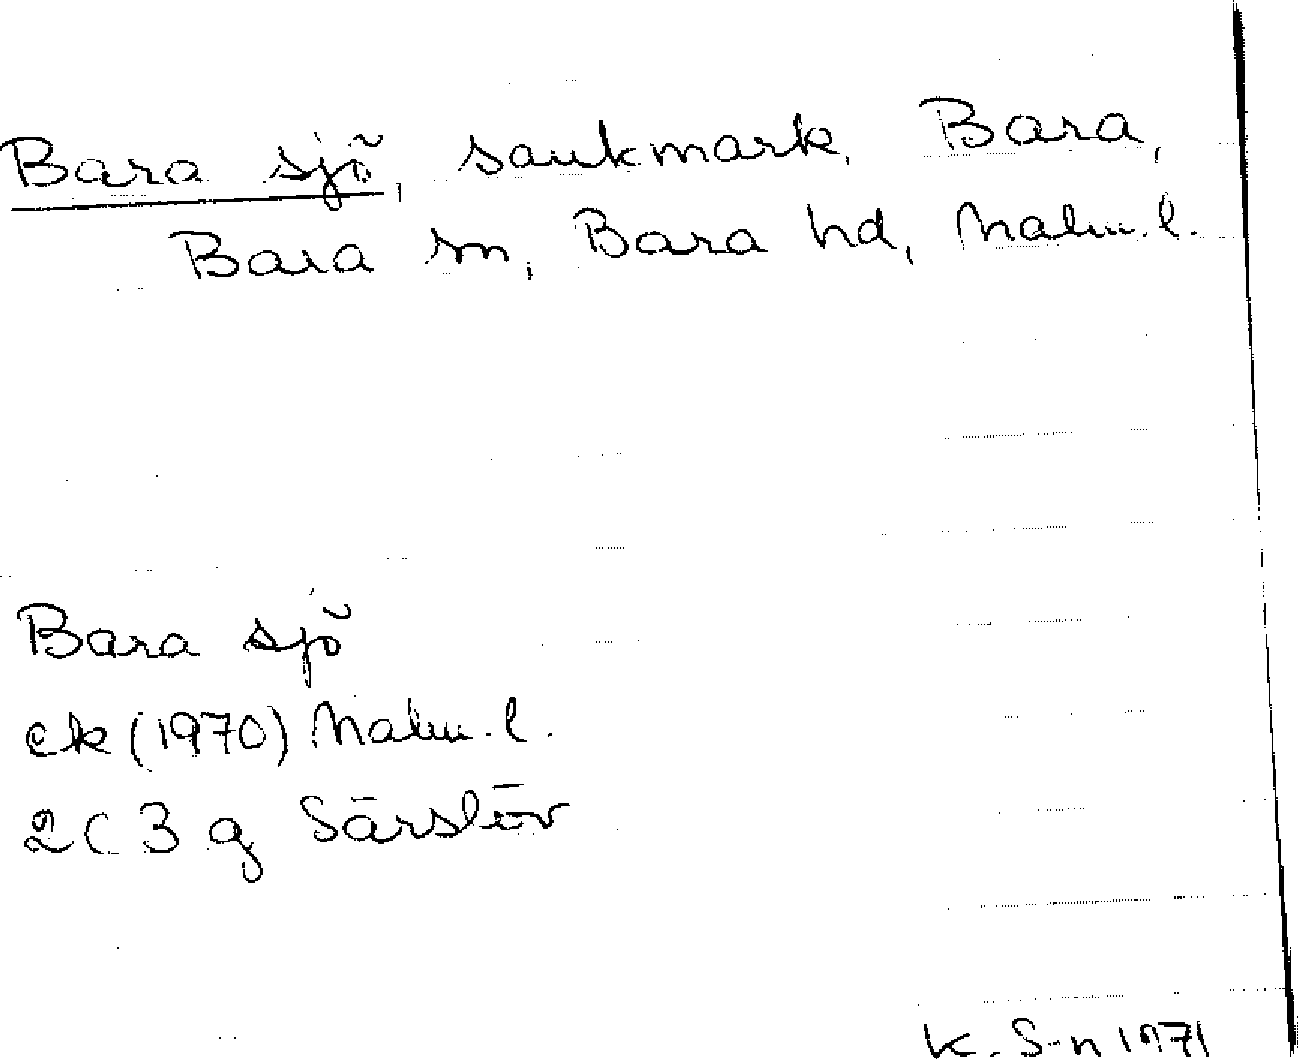 Bara sjö, sankmark, Bara,
Bara sn, Bara hd, Malm. l.
Bara sjö
ek (1970) Malm. l.
2C 3g Särslöv
K. S-n 1971